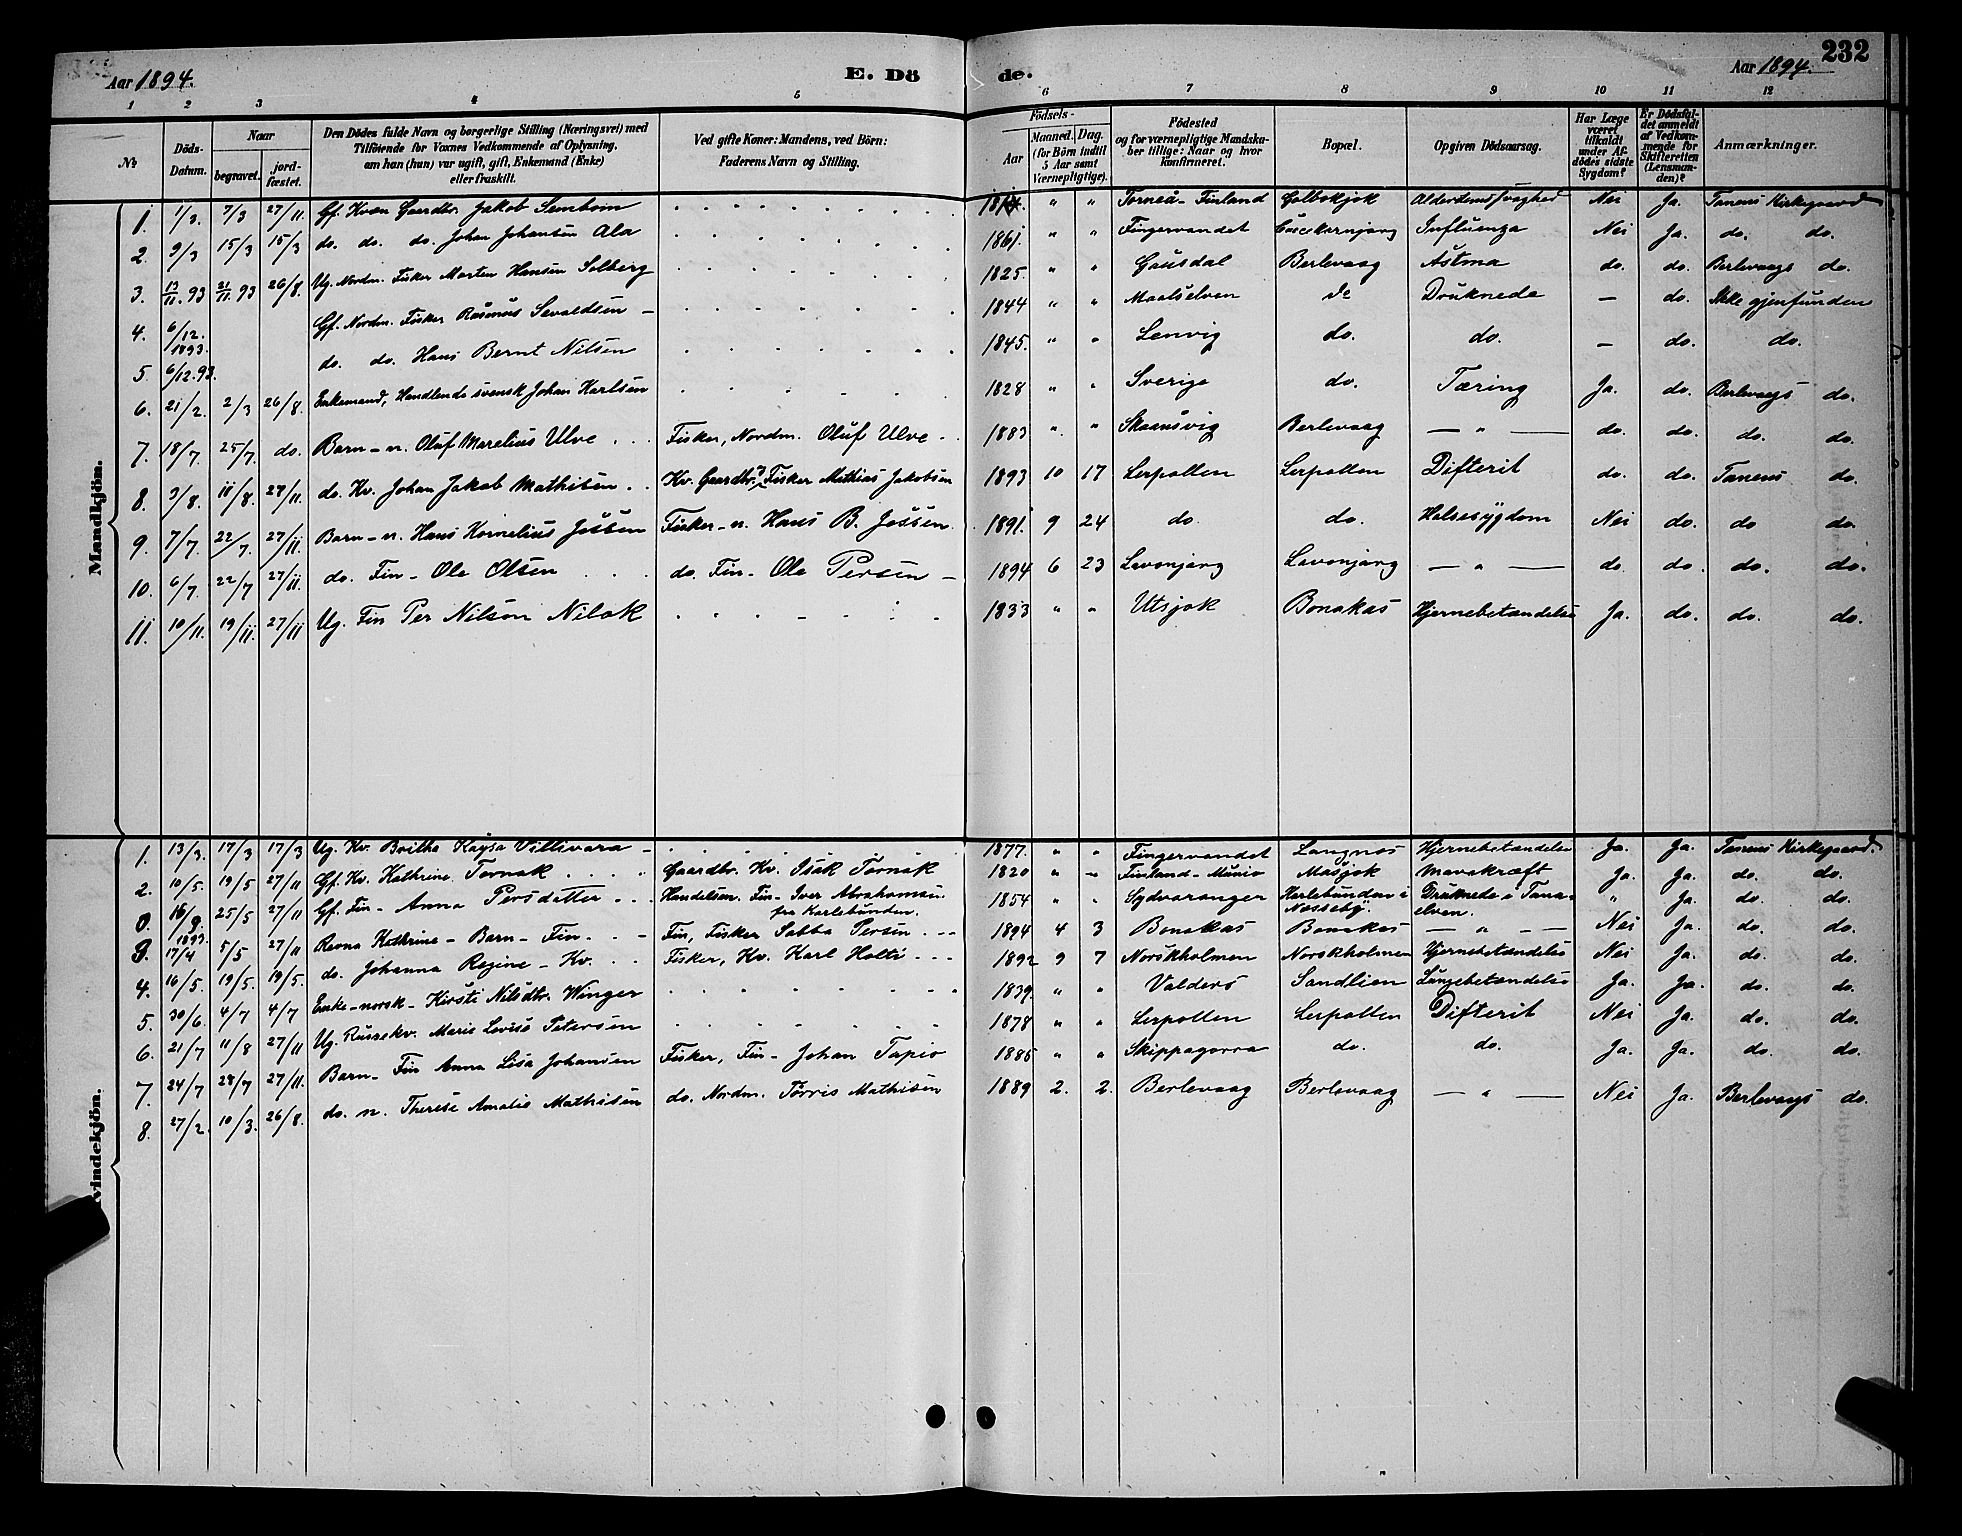 232
Aar 1894. E. Dö de. Aar 1894.
1 2 3 4 5 6 7 8 9 10 11 12
№ Döds-Datum. Naar begravet. jordfæstet. Den Dödes fulde Navn og borgerlige Stilling (Næringsvei) med Tilföiende for Voxnes Vedkommende af Oplysning, om han (hun) var ugift, gift, Enkemand (Enke) eller fraskilt. Ved gifte Koner: Mandens, ved Börn: Faderens Navn og Stilling. Födsels- Aar Maaned. Dag. (for Börn indtil 5 Aar samt Værnepligtige). Födested og for værnepligtige Mandskaber tillige: Naar og hvor konfirmeret. Bopæl. Opgiven Dödsaarsag. Har Læge været tilkaldt under Afdödes sidste Sygdom? Er Dödsfaldet anmeldt af Vedkommende for Skifteretten (Lensmanden)? Anmærkninger.
Mandkjön.
1. 1/3. 7/3 27/11. Gf. Kvæn Gaardbr. Jakob Sembom 18 " " Torneå-Finland Golbokjok Alderdomssvaghed Nei Ja. Tanens Kirkegaard
2. 9/3 15/3 15/3 do. do. do. Johan Johansen Ala 1861. " " Fingervandet Influenza Nei Ja. do. do.
3. 13/11.93 21/11.93 26/8. Ug. Nordm. Fisker Morten Hansen Solberg 1825. " " Gausdal Berlevaag Astma do. do. Berlevaags do.
4. 6/12. 1893. Gf. Nordm. Fisker Rasmus Sevaldsen — 1844 " " Maalselven do Druknede — do. Ikke gjenfunden
5. 6/12.93. do. do. Hans Bernt Nilsen 1845. " " Lenvig do. do. — do. do.
6. 21/2. 2/3 26/8. Enkemand, Handlende svensk Johan Karlsen 1828 " " Sverige do. Tæring Ja. do. Berlevaags do.
7. 18/7. 25/7. do. Barn - n. Oluf Marelius Ulve Fisker, Nordm. Oluf Ulve 1883 " " Skaansvig Berlevaag — " — do. do. do. do.
8. 3/8. 11/8. 27/11. do. Kv. Johan Jakob Mathisen Kv. Gaardbr. Fisker Mathias Jakobsen 1893 10 17 Lerpollen Lerpollen Difterit do. do. Tanens do.
9. 7/7. 22/7. 27/11. Barn - n. Hans Kornelius Jessen Fisker - n. Hans B. Jessen 1891. 9 24 do. do. Halsesygdom Nei do. do do.
10. 6/7. 22/7 27/11. do. Fin - Ole Olsen do. Fin - Ole Persen — 1894 6 23 Lavonjarg Lavonjarg — " — do. do. do. do.
11. 10/11. 19/11. 27/11 Ug. Fin Per Nilsen Nilak 1833 " " Utsjok Bonakas Hjernebetændelse Ja. do. do. do.
Kvindekjön.
1. 13/3. 17/3 17/3 Ug. Kv. Britha Kaysa Vittivara — 1877. " " Fingervandet Langnæs Hjernebetændelse Ja. Ja. Tanens Kirkegaard.
2. 10/5. 19/5 27/11 Gf. Kv. Kathrine Tornæk Gaardbr. Kv. Isak Tornæk 1820 " " Finland - Munio Masjok Mavekræft Ja. Ja. do. do.
0. 16/9. 1893. 25/5 27/11 Gf. Fin - Anna Persdatter Handelsm. Fin - Iver Abrahamsen fra Karlebunden. 1854 " " Sydvaranger Karlebunden i Næsseby. Druknede i Tanaelven. " Ja. do. do.
3. 17/4 5/5 27/11 Ravna Kathrine - Barn - Fin. Fin, Fisker Sabba Persen 1894 4 3 Bonakas Bonakas — " — Nei Ja. do. do.
4. 16/5. 19/5. 19/5. do. Johanna Regine - Kv. Fisker, Kv. Karl Holti 1892 9 7 Norskholmen Norskholmen Hjernebetændelse Nei Ja. do. do.
5. 30/6. 4/7 4/7 Enke - norsk - Kirsti Nilsdtr. Winger 1839. " " Valders Sandlien Lungebetændelse Ja. Ja. do. do.
6. 21/7 11/8 27/11 Ug. Russekv. Marie Lovise Petersen 1878 " " Lerpollen Lerpollen Difterit Nei Ja. do. do.
7. 24/7 28/7 27/11. Barn - Fin Anna Lisa Johansen Fisker, Fin - Johan Tapio 1885 " " Skippagorra do. do. Ja. Ja. do. do.
8. 27/2. 10/3. 26/8. do. n. Therese Amalie Mathisen do. Nordm. Torris Mathisen 1889 2. 2. Berlevaag Berlevaag — " — Nei Ja. Berlevaags do.